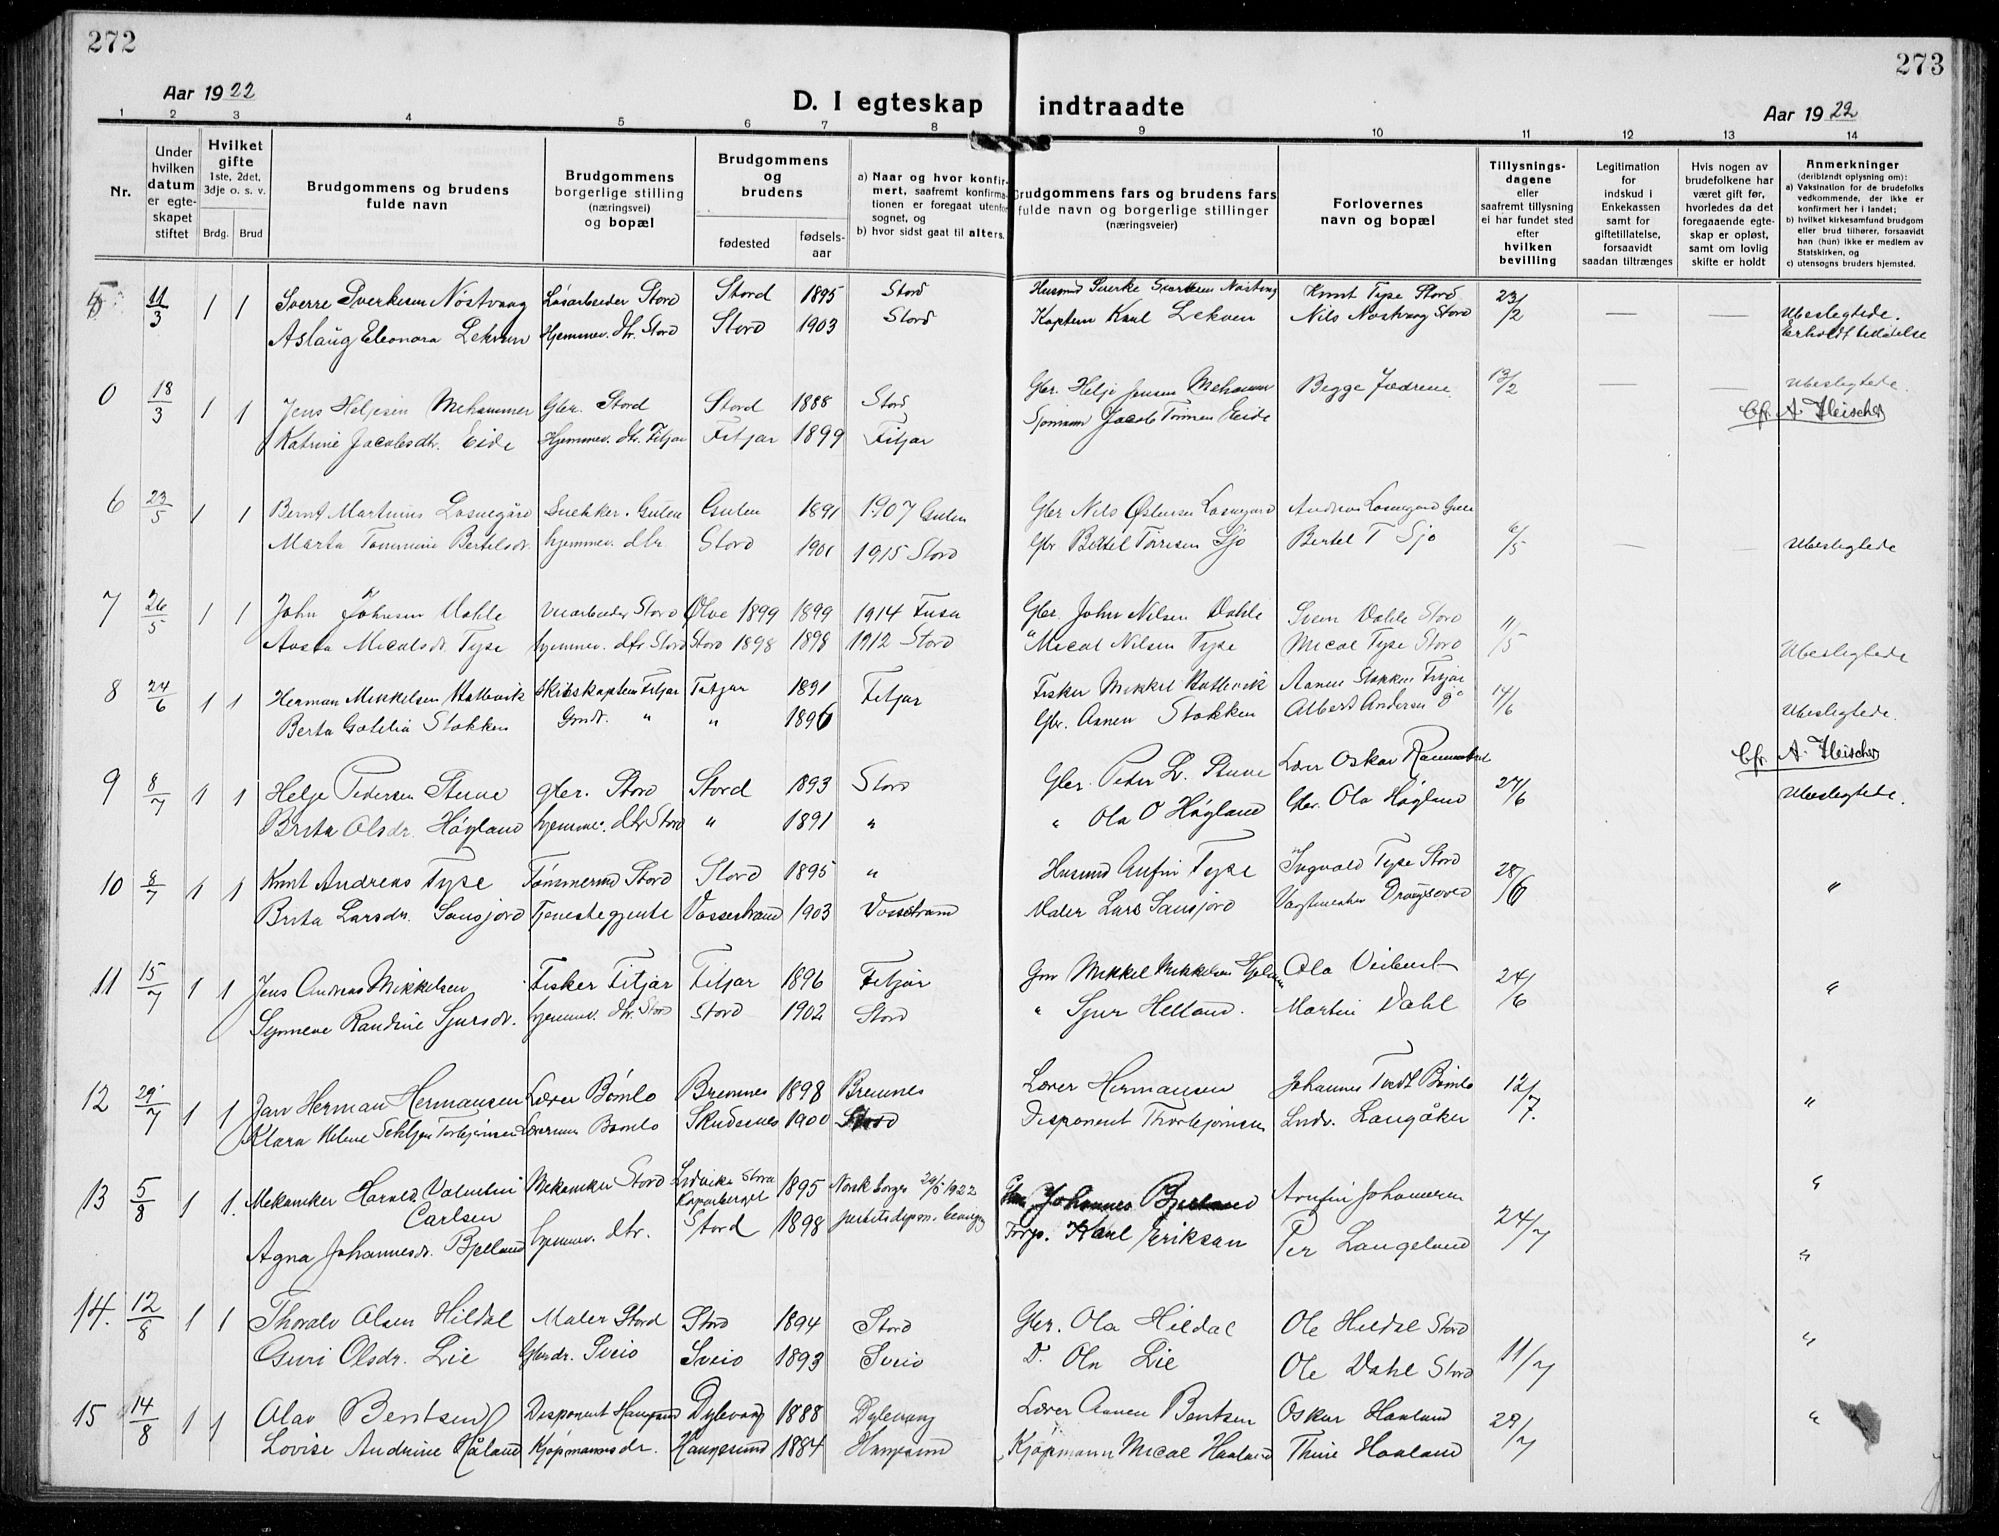 272
273
Aar 1922
D. I egteskap indtraadte
Aar 1922
1 2 3 4 5 6 7 8 9 10 11 12 13 14
Nr.
Under hvilken datum er egteskapet stiftet
Hvilket gifte 1ste, 2det, 3dje o. s. v.
Brdg. Brud
Brudgommens og brudens fulde navn
Brudgommens borgerlige stilling (næringsvei) og bopæl
Brudgommens og brudens
fødested
fødselsaar
a) Naar og hvor konfirmert, saafremt konfirmationen er foregaat utenfor sognet, og
b) hvor sidst gaat til alters.
Brudgommens fars og brudens fars fulde navn og borgerlige stillinger (næringsveier)
Forlovernes navn og bopæl
Tillysningsdagene eller saafremt tillysning ei har fundet sted efter hvilken bevilling
Legitimation for indskud i Enkekassen samt for giftetillatelse, forsaavidt saadan tiltrænges
Hvis nogen av brudefolkene har været gift før, hvorledes da det foregaaende egteskap er opløst, samt om lovlig skifte er holdt
Anmerkninger (deriblandt oplysning om):
a) Vaksination for de brudefolks vedkommende, der ikke er konfirmert her i landet;
b) hvilket kirkesamfund brudgom eller brud tilhører, forsaavidt han (hun) ikke er medlem av Statskirken, og
c) utensogns bruders hjemsted.
5 11/3 1 1 Sverre Sverkesen Nóstvaag Lósarbeider Stord Stord 1895 Stord Husmd Sverke Nóstvag Knut Tyse Stord 23/2 — —
Aslaug Eleonora Lekven Hjemmev. dtr. Stord Stord 1903 Stord Kaptein Karl Lekven Nils Nóstvag Stord Ubeslegtede.
0 18/3 1 1 Jens Heljesen Mehammer Gbr. Stord Stord 1888 Stord Gbr. Helje Jensen Mehammer Begge Fædrene 13/2 — — Ubeslegtede.
Katrine Jacobsdtr. Eide Hjemmev. dtr. Fitjar Fitjar 1899 Fitjar Sjømann Jacob Eide
Cfr. A. Fleischer
6 23/5 1 1 Bernt Martinius Losnegård Snekker. Gulen Gulen 1891 1907 Gulen Gbr Nils Østensen Losnegard Andreas Losnegard
Marta Tommine Bertelsdr. hjemmev. dtr. Stord 1901 1915 Stord Gbr Bertel Tórresen Sjo Bertel T Sjo 6/5 — — Ubeslegtede
7 26/5 1 1 John Johnsen Dahle Stord Ølve 1899 1899 1914 Fusa Gbr. John Nilsen Dahle Sven Dahle Stord 11/5
Aasta Micalsdr. Tyse hjemmev. dtr Stord Stord 1898 1898 1912 Stord " Mical Nilsen Tyse Mical Tyse Stord Ubeslegtede
8 24/6 1 1 Herman Mikkelsen Hattevik Skibskaptein Fitjar Fitjar 1891 Fitjar Fisker Mikkel Hattevik Aanen Stokken Fitjar 14/6
Berta Gotilia Stokken " " 1896 Gbr. Aanen Stokken Albert Andersen Ubeslegtede.
Cfr. A. Fleischer
9 8/7 1 1 Helje Pedersen Stuve gbr. Stord Stord 1893 Stord Gbr. Peter L. Stuve Lærer Oskar 27/6 Ubeslegtede.
Brita Olsdr. Høyland hjemmev. dtr Stord " 1891 " " Ola O Høyland Gbr. Ola Høyland
10 8/7 1 1 Knut Andreas Tyse Tómmermd Stord Stord 1895 " Husmd Anfin Tyse Ingvald Tyse Stord 28/6 "
Brita Larsdr. Sausjord Tjenestegjente Vossestrand 1903 Vossestrand Maler Lars Sausjord Vagtmester
11 15/7 1 1 Jens Andreas Mikkelsen Fisker Fitjar Fitjar 1896 Fitjar Mikkel Mikkelsen Ola 24/6 "
Synneve Randine Sjursdr. hjemmev. dtr. Stord Stord 1902 Stord " Sjur Helland. Martin Dahl
12 29/7 1 1 Jan Herman Hermansen Lærer Bómlo Bremnes 1898 Bremnes Lærer Hermansen Johannes Tvedt Bómlo 12/7. "
Klara Helene Torbjórnsen Bómlo Skudesnes 1900 Stord Disponent Thorbjórnsen Lndv. Langåker
13 5/8 1 1. Mekaniker Harald Valentin Carlsen Mekaniker Stord Ludvika Stora Kopparberget 1895 Norsk borger 29/5 1922 Johannes Bjelland Arnfin Johannesen "
Agna Johannesdr. Bjelland hjemmev. dtr. Stord 1898 Karl Eriksan Per Langeland 24/7 "
14. 12/8 1 1 Thoralv Olsen Hildal Maler Stord Stord 1894 Stord Gbr. Ola Hildal Ole Hildal Stord "
Guri Olsdr. Lie Gbrdr. Sveio Sveio 1893 Sveio D. Ola Lie Ole Dahl Stord 11/7
15 14/8 1 1 Olav Bentsen Disponent Haugesund Dylevaag 1888 Dylevaag Lærer Aanen Bentsen Oskar Haaland 29/7 "
Lovise Andrine Håland Kjøpmannsdr. Haugesund 1884 Haugesund Kjøpmann Mical Haaland Thine Haaland